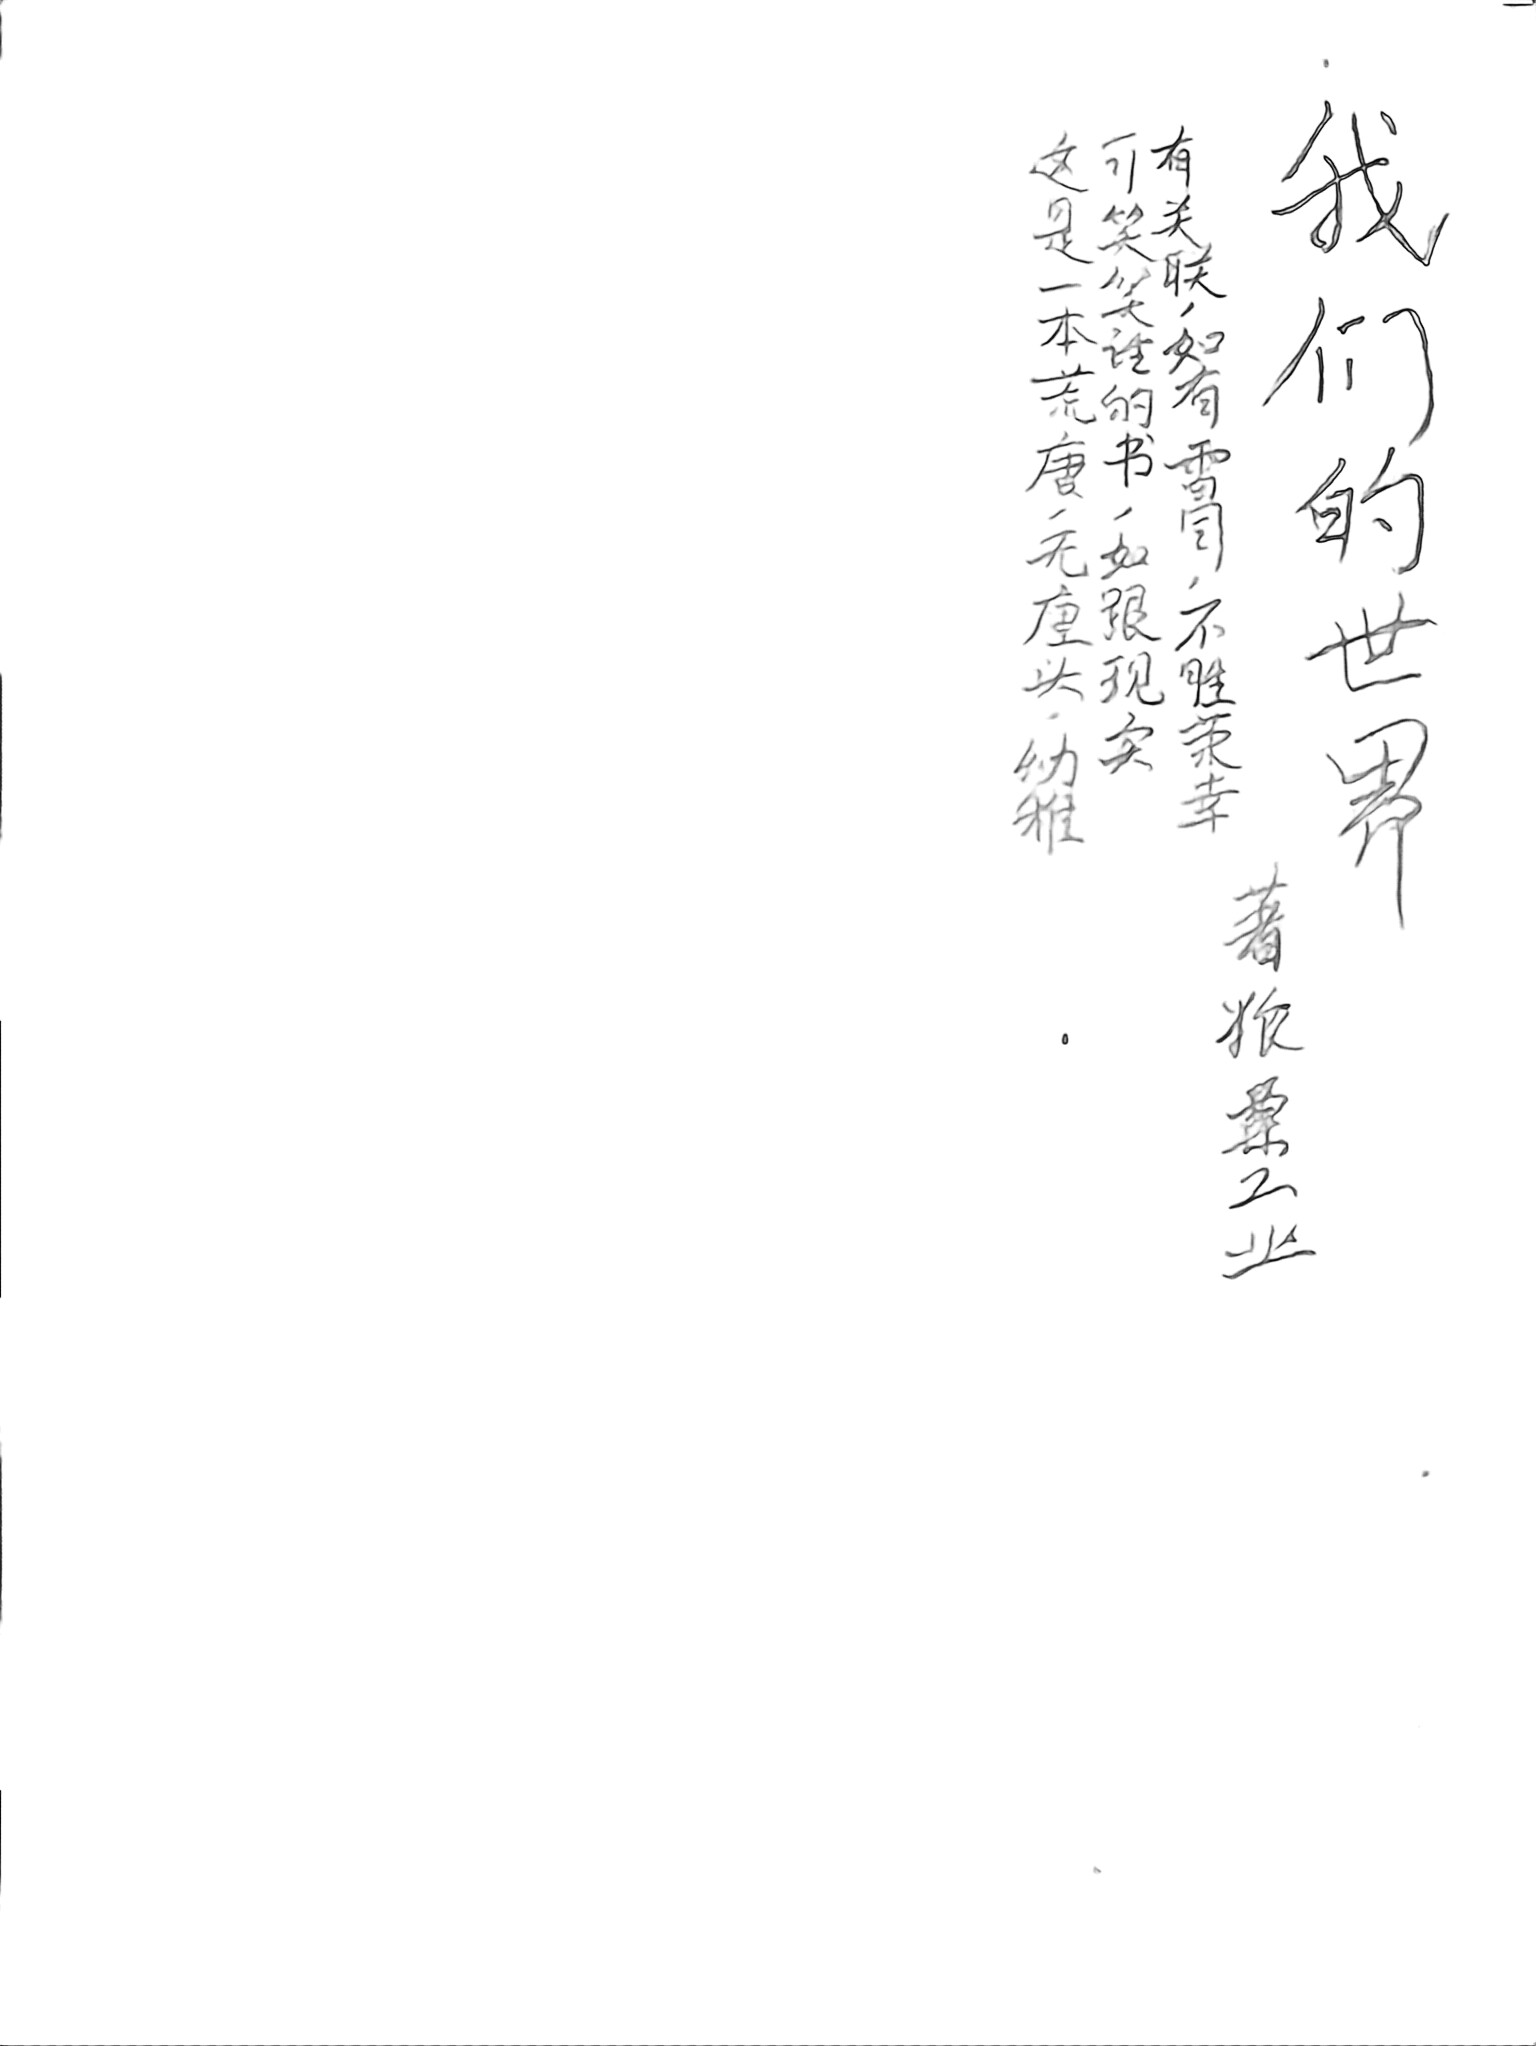 我们的世界
著 工业
这是一本荒唐，无厘头，幼稚
可笑笑谁的书，如跟现实
有关联，如有雷同，不胜荣幸